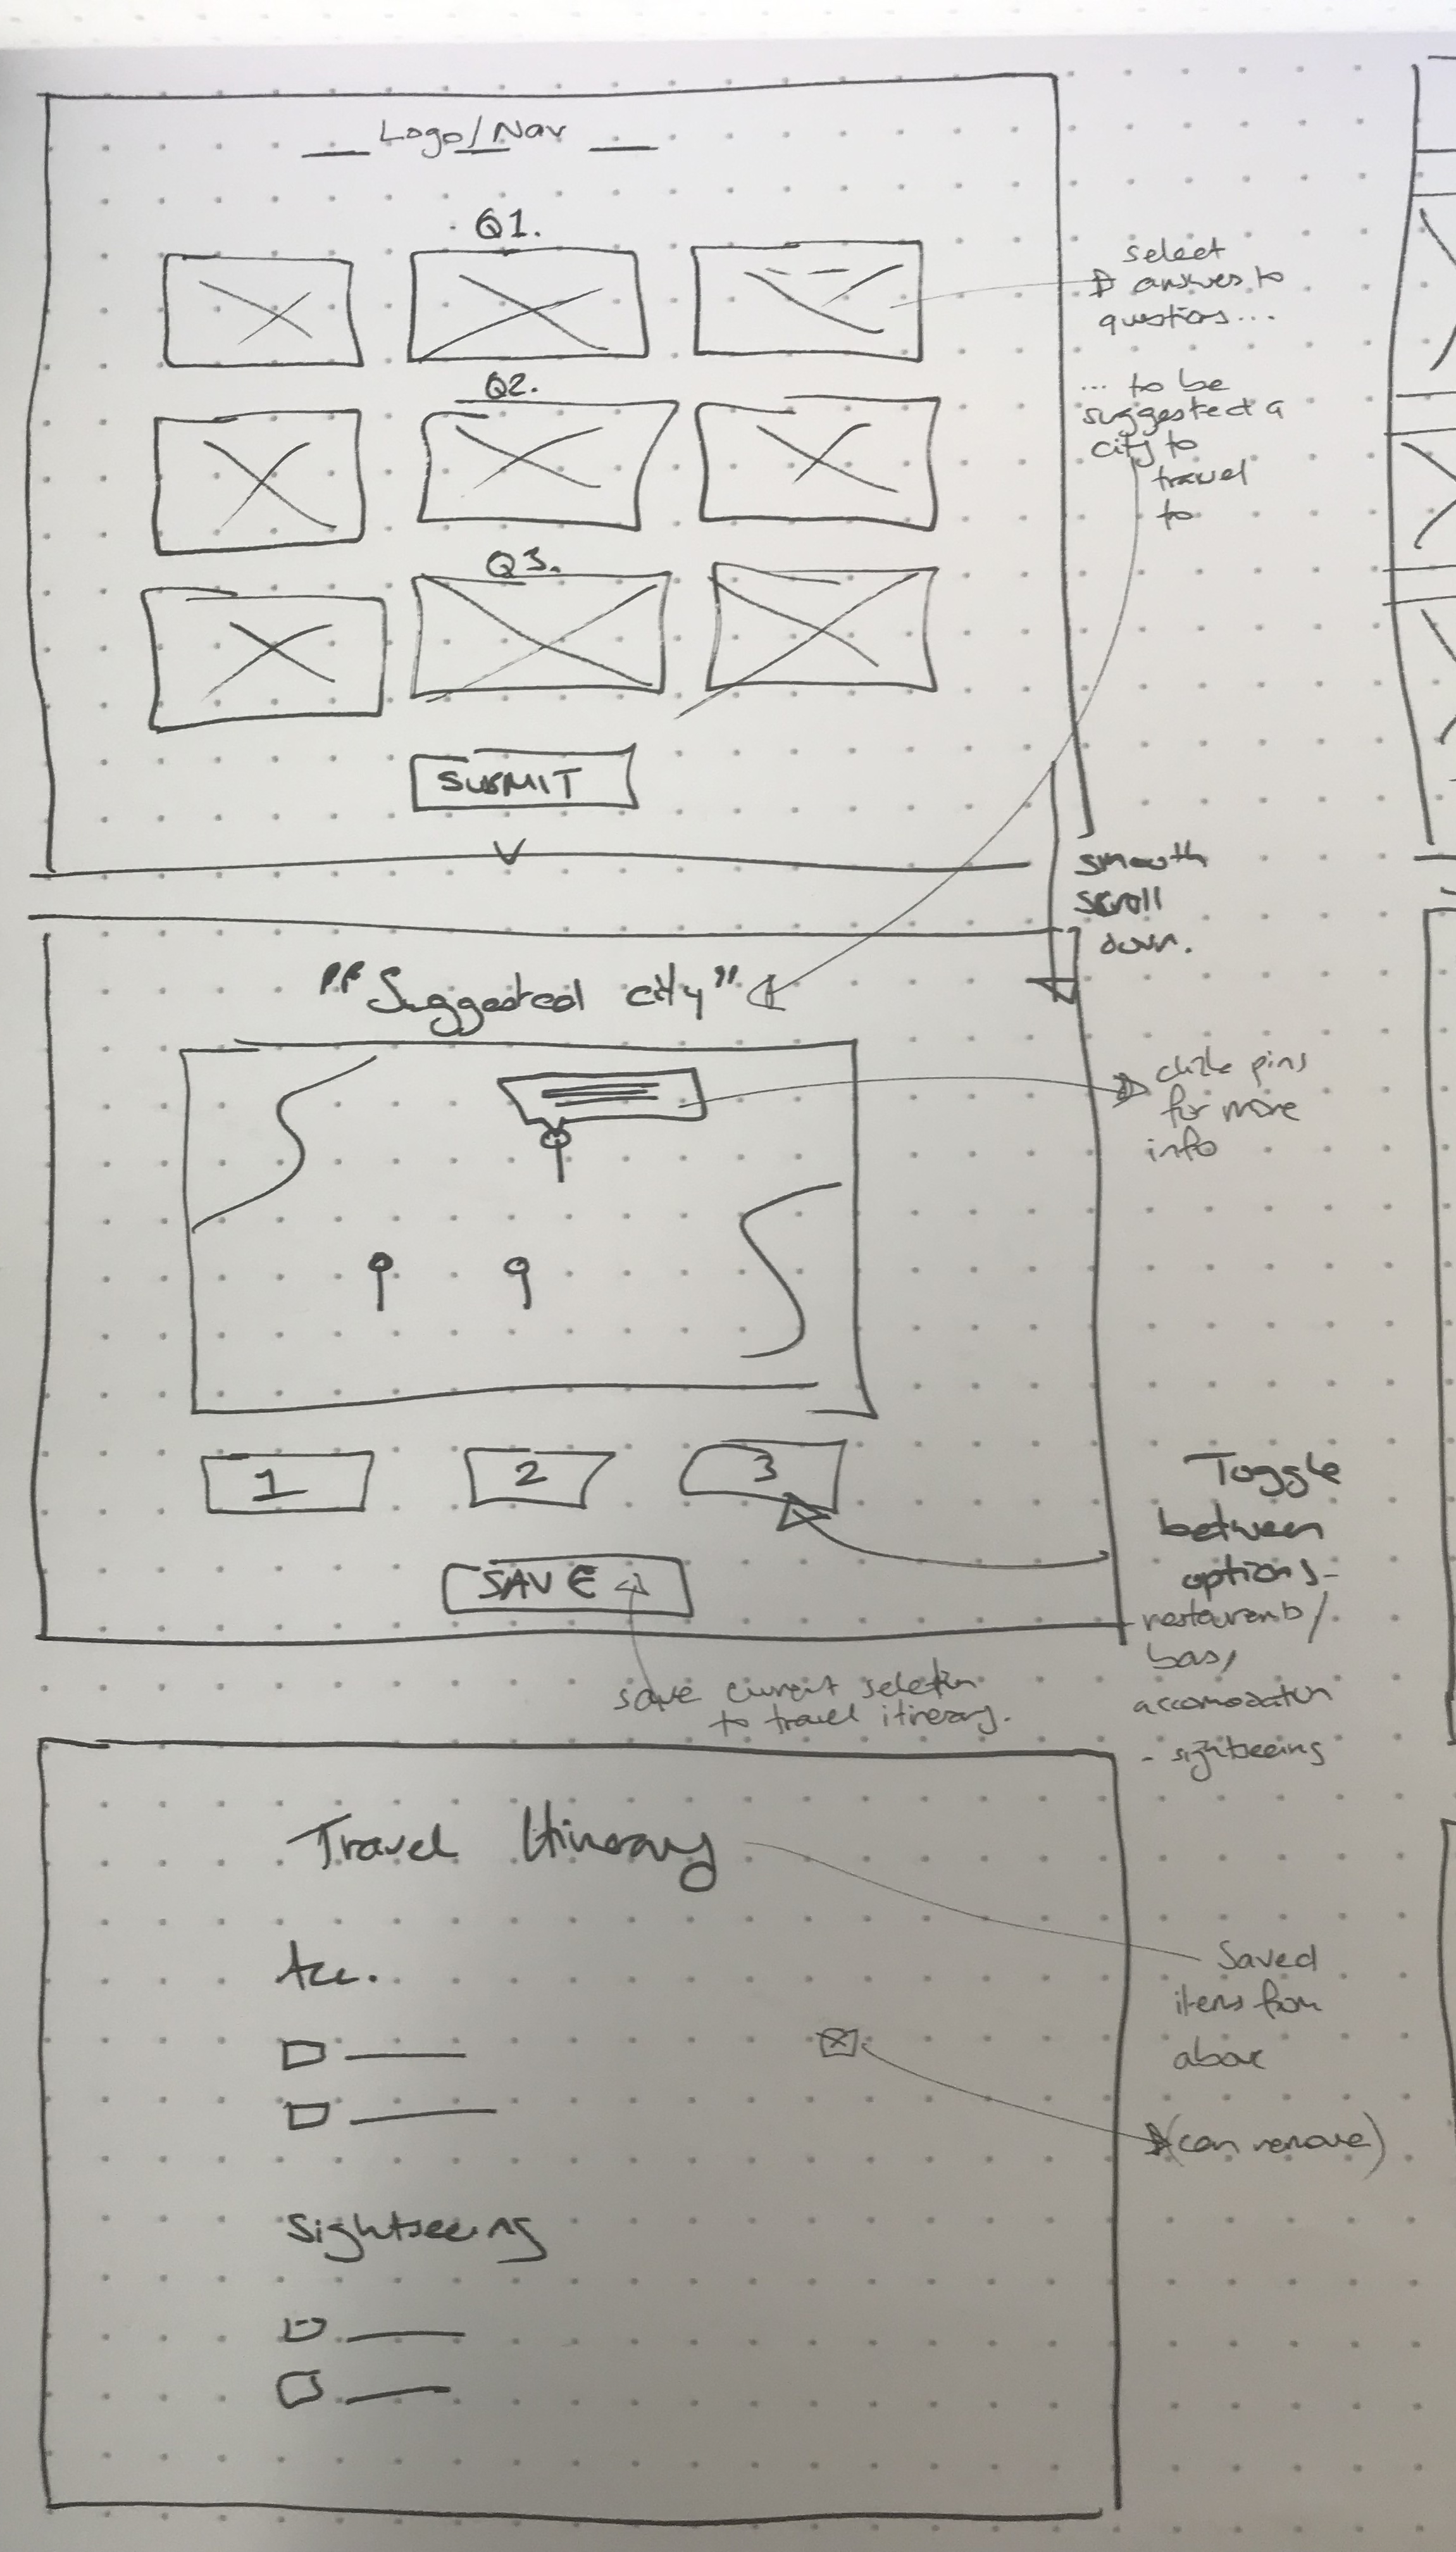 Logo/Nav
Q1.
select
answer to
questions...
Q2.
... to be
suggested a
city to
travel
to
Q3.
SUBMIT
smooth
scroll
down.
"Suggested city"
click pins
for more
info
1 2 3
Toggle
between
options -
restaurants/
bars,
accomodation
- sightseeing
SAVE
save current selection
to travel itinerary.
Travel Itinerary
Acc.
Saved
items from
above
(can remove)
Sightseeing